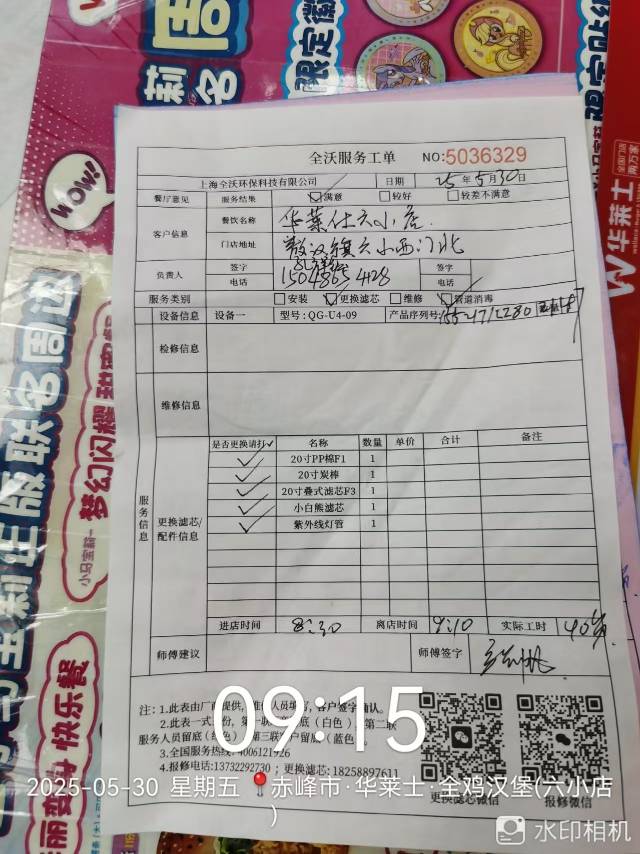 WOW!
限定徽
华莱士
全沃服务工单 NO:5036329
上海全沃环保科技有限公司 日期 25年5月30日
餐厅意见 服务结果 满意 较好 较差不满意
客户信息 餐饮名称 华莱仕六小店
门店地址 敖汉旗六小西门北
负责人 签字 签字
电话 15048654128 电话
服务类别 安装 更换滤芯 维修 管道消毒
设备信息 设备一 型号:QG-U4-09 产品序列号:
检修信息
维修信息
服务信息 更换滤芯/配件信息
是否更换请打✓ 名称 数量 单价 合计 备注
✓ 20寸PP棉F1 1
✓ 20寸炭棒 1
✓ 20寸叠式滤芯F3 1
✓ 小白熊滤芯 1
✓ 紫外线灯管 1
进店时间 8:30 离店时间 9:10 实际工时 40分
师傅建议 师傅签字
注:1.此表由厂商提供,维修人员填写,客户签字确认。
2.此表一式三份,第一联 底(白色),第二联
服务人员留底( 色),第三联客户留底(蓝色)。
3.全国服务热线:4006121926
4.报修电话:13732292730;更换滤芯:18258897611
更换滤芯微信 报修微信
09:15
2025-05-30 星期五 赤峰市·华莱士·全鸡汉堡(六小店
)
水印相机
联名周边
梦幻闪耀甜
小马宝莉
快乐餐